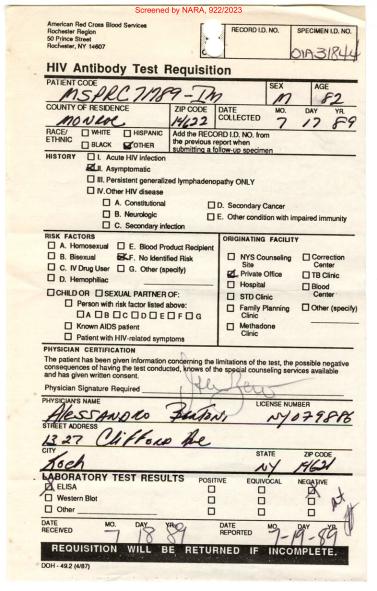 Screened by NARA, 922/2023
American Red Cross Blood Services
Rochester Region
50 Prince Street
Rochester, NY 14607
RECORD I.D. NO.
SPECIMEN I.D. NO.
01A31844
HIV Antibody Test Requisition
PATIENT CODE
SEX
M
AGE
82
COUNTY OF RESIDENCE
Monroe
ZIP CODE
14622
DATE COLLECTED
MO. DAY YR.
7 17 89
RACE/ETHNIC
WHITE HISPANIC
BLACK OTHER
Add the RECORD I.D. NO. from
the previous report when
submitting a follow-up specimen
HISTORY
I. Acute HIV infection
II. Asymptomatic
III. Persistent generalized lymphadenopathy ONLY
IV. Other HIV disease
A. Constitutional
B. Neurologic
C. Secondary infection
D. Secondary Cancer
E. Other condition with impaired immunity
RISK FACTORS
A. Homosexual E. Blood Product Recipient
B. Bisexual F. No Identified Risk
C. IV Drug User G. Other (specify)
D. Hemophiliac
CHILD OR SEXUAL PARTNER OF:
Person with risk factor listed above:
A B C D E F G
Known AIDS patient
Patient with HIV-related symptoms
ORIGINATING FACILITY
NYS Counseling Site
Private Office
Hospital
STD Clinic
Family Planning Clinic
Methadone Clinic
Correction Center
TB Clinic
Blood Center
Other (specify)
PHYSICIAN CERTIFICATION
The patient has been given information concerning the limitations of the test, the possible negative
consequences of having the test conducted, knows of the special counseling services available
and has given written consent.
Physician Signature Required
PHYSICIAN'S NAME
LICENSE NUMBER
Alessandro
NY079886
STREET ADDRESS
1327 Clifford Ave
CITY
STATE
ZIP CODE
Roch
NY
14621
LABORATORY TEST RESULTS
POSITIVE EQUIVOCAL NEGATIVE
ELISA
Western Blot
Other
DATE RECEIVED
MO. DAY YR.
7 18 89
DATE REPORTED
MO. DAY YR.
7-19-89
REQUISITION WILL BE RETURNED IF INCOMPLETE.
DOH - 49.2 (4/87)